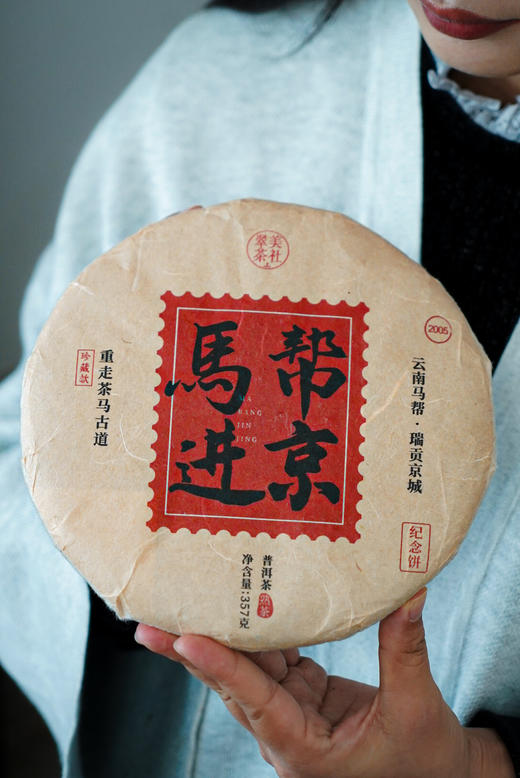 翠美
茶社
2005
馬帮
进京
MA
BANG
JIN
JING
云南马帮·瑞贡京城
纪念饼
重走茶马古道
珍藏款
普洱茶
熟茶
净含量:357克